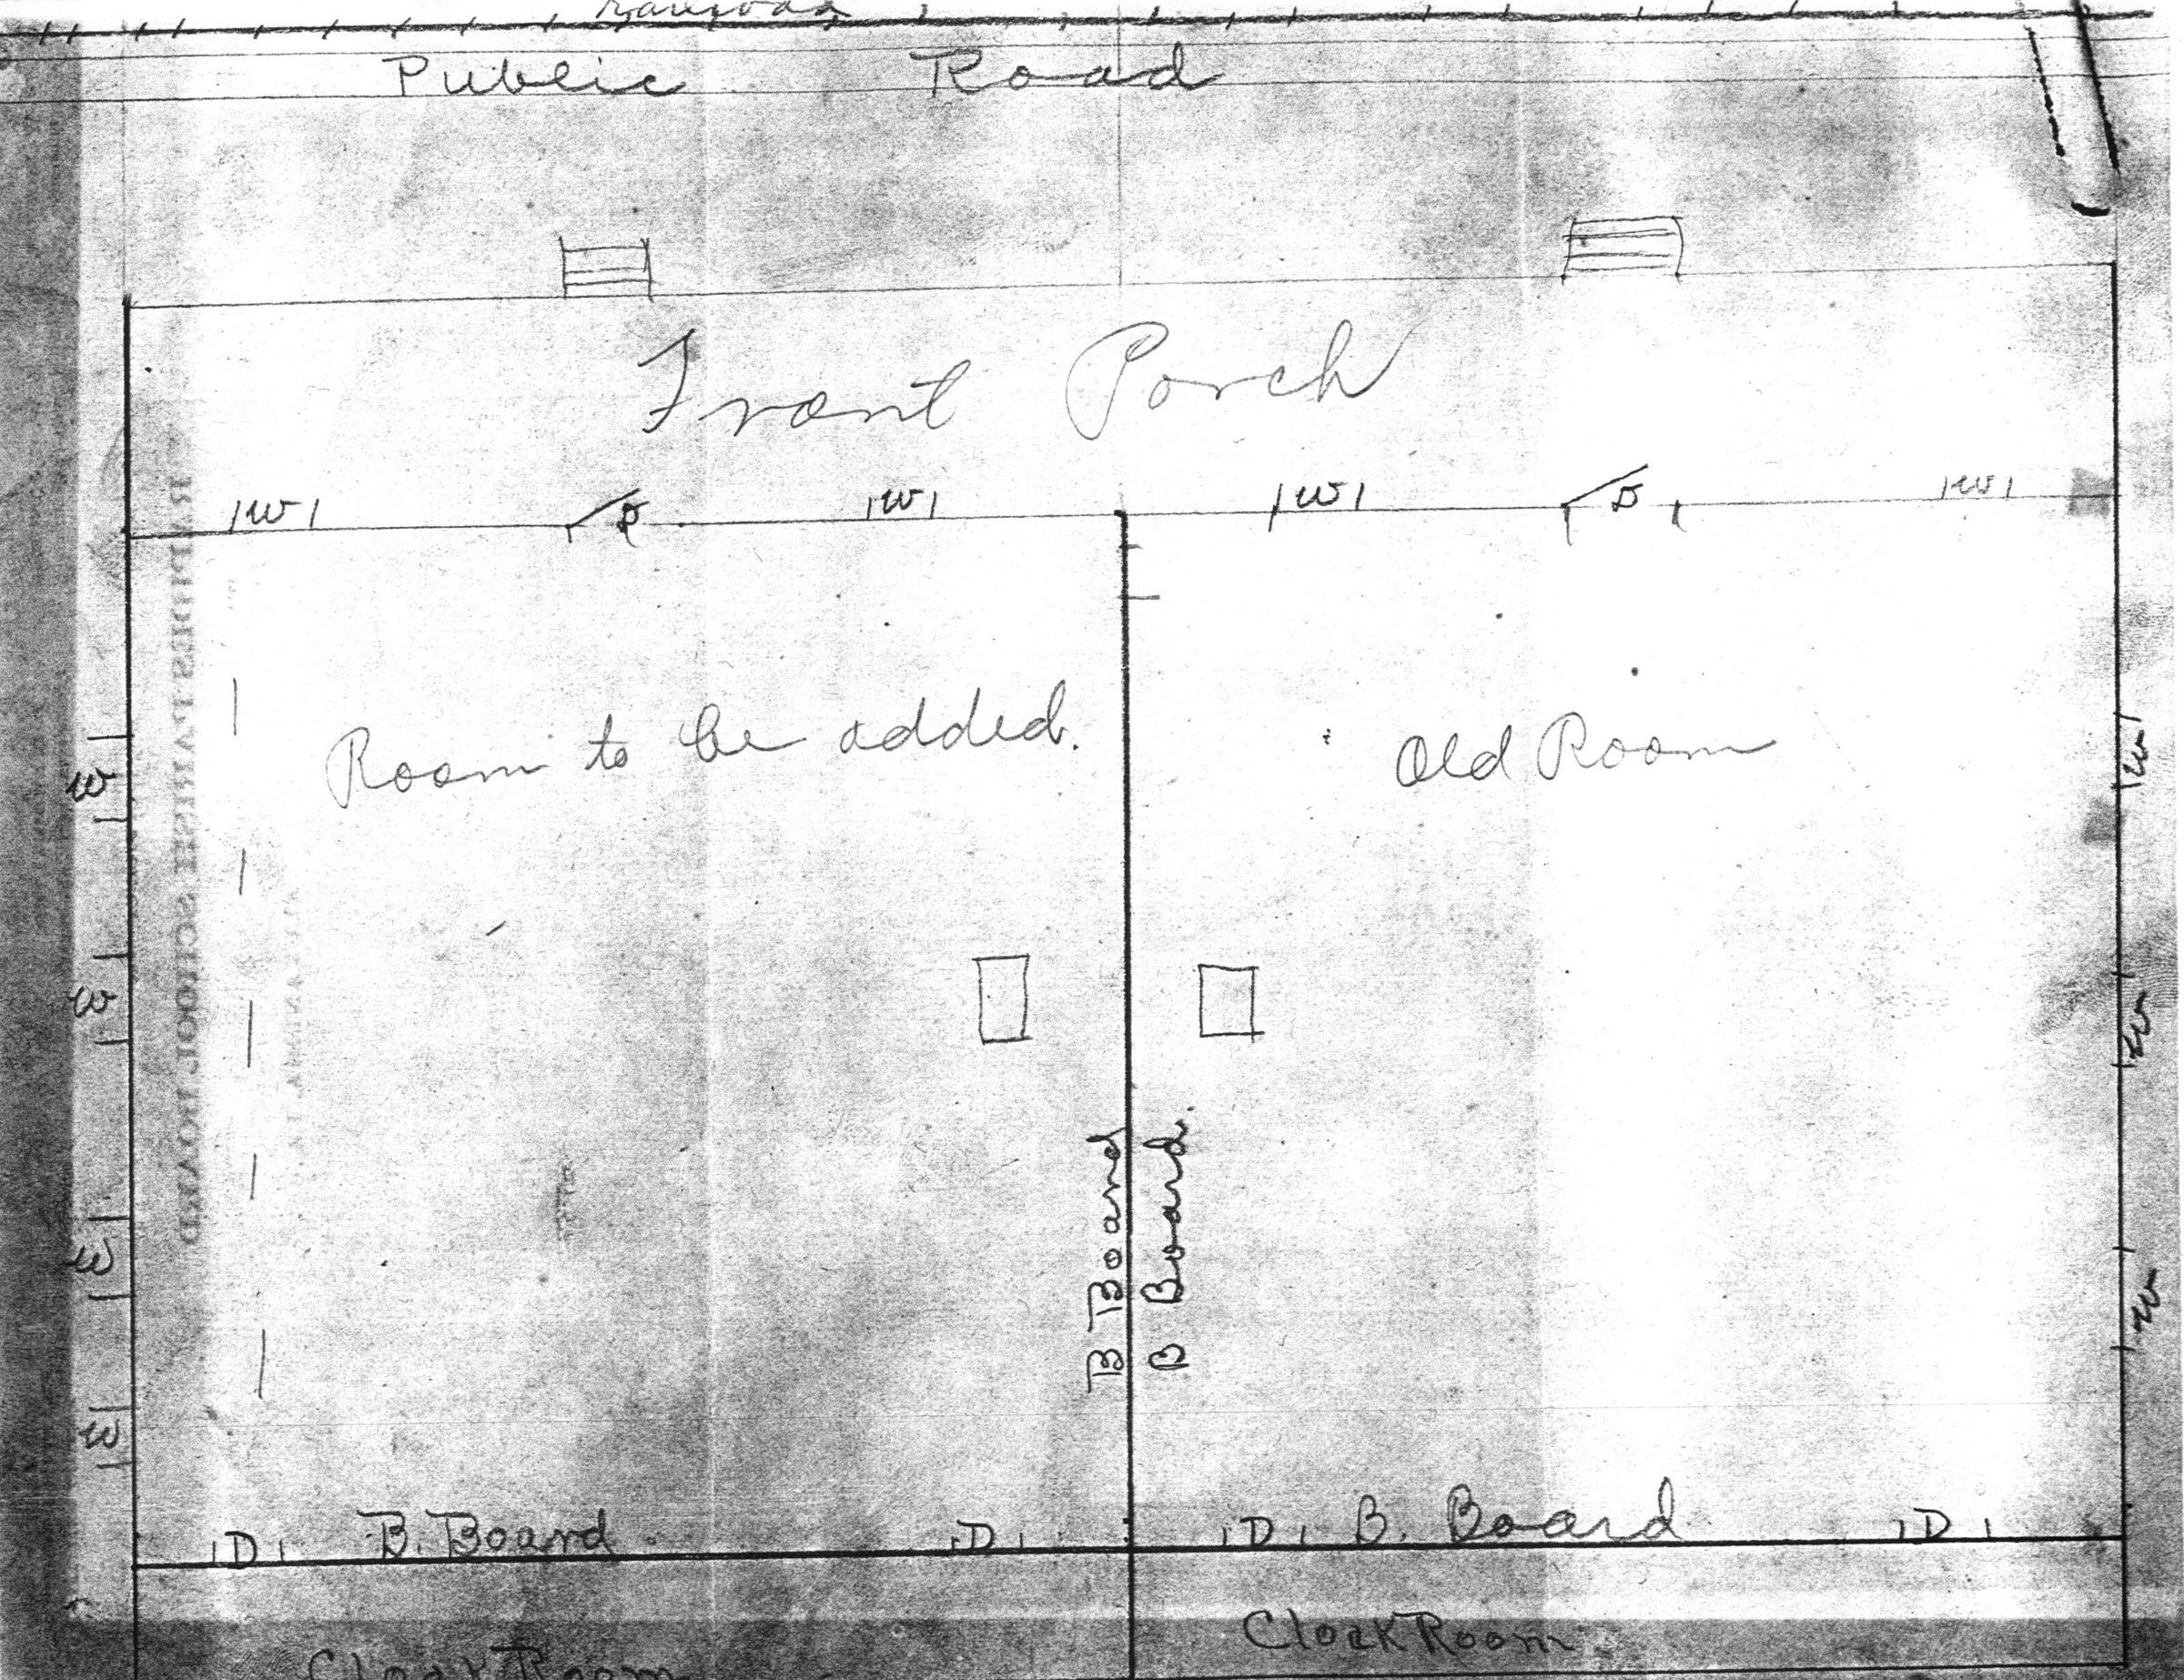 Railroad
Public Road
Front Porch
W D W W D W
Room to be added.
Old Room
W
W
W
W
W
W
W
B Board
B Board.
D B. Board D D B. Board D
Cloak Room
Cloak Room
RAPIDES PARISH SCHOOL BOARD